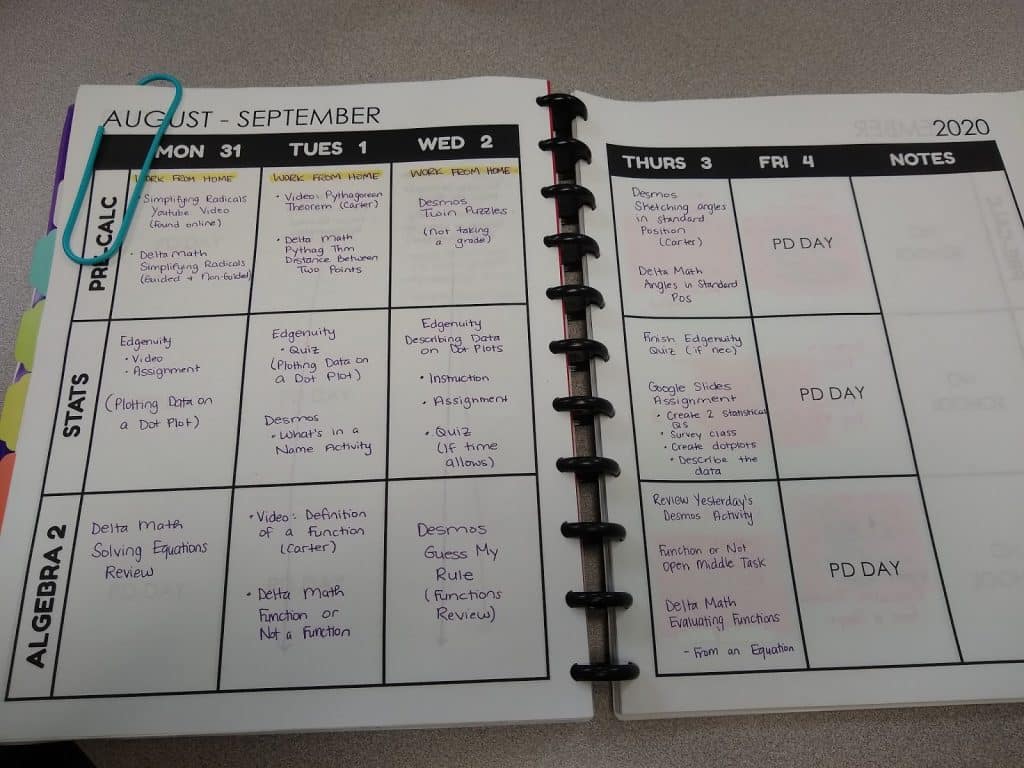 AUGUST - SEPTEMBER
MON 31
TUES 1
WED 2
PRE-CALC
WORK FROM HOME
• Simplifying Radicals
Youtube Video
(found online)
• Delta Math
Simplifying Radicals
(Guided + Non-Guided)
WORK FROM HOME
• Video: Pythagorean
Theorem (Carter)
• Delta Math
Pythag Thm
Distance Between
Two Points
WORK FROM HOME
Desmos
Twin Puzzles
(not taking
a grade)
STATS
Edgenuity
• Video
• Assignment
(Plotting Data on
a Dot Plot)
Edgenuity
• Quiz
(Plotting Data on
a Dot Plot)
Desmos
• What's in a
Name Activity
Edgenuity
Describing Data
on Dot Plots
• Instruction
• Assignment
• Quiz
(If time
allows)
ALGEBRA 2
Delta Math
Solving Equations
Review
• Video: Definition
of a Function
(Carter)
• Delta Math
Function or
Not a Function
Desmos
Guess My
Rule
(Functions
Review)
2020
THURS 3
FRI 4
NOTES
Desmos
Sketching angles
in standard
Position
(Carter)
Delta Math
Angles in Standard
Pos
PD DAY
Finish Edgenuity
Quiz (if nec)
Google Slides
Assignment
• Create 2 Statistical
Qs
• Survey class
• Create dotplots
• Describe the
data
PD DAY
Review Yesterday's
Desmos Activity
Function or Not
Open Middle Task
Delta Math
Evaluating Functions
- From an Equation
PD DAY